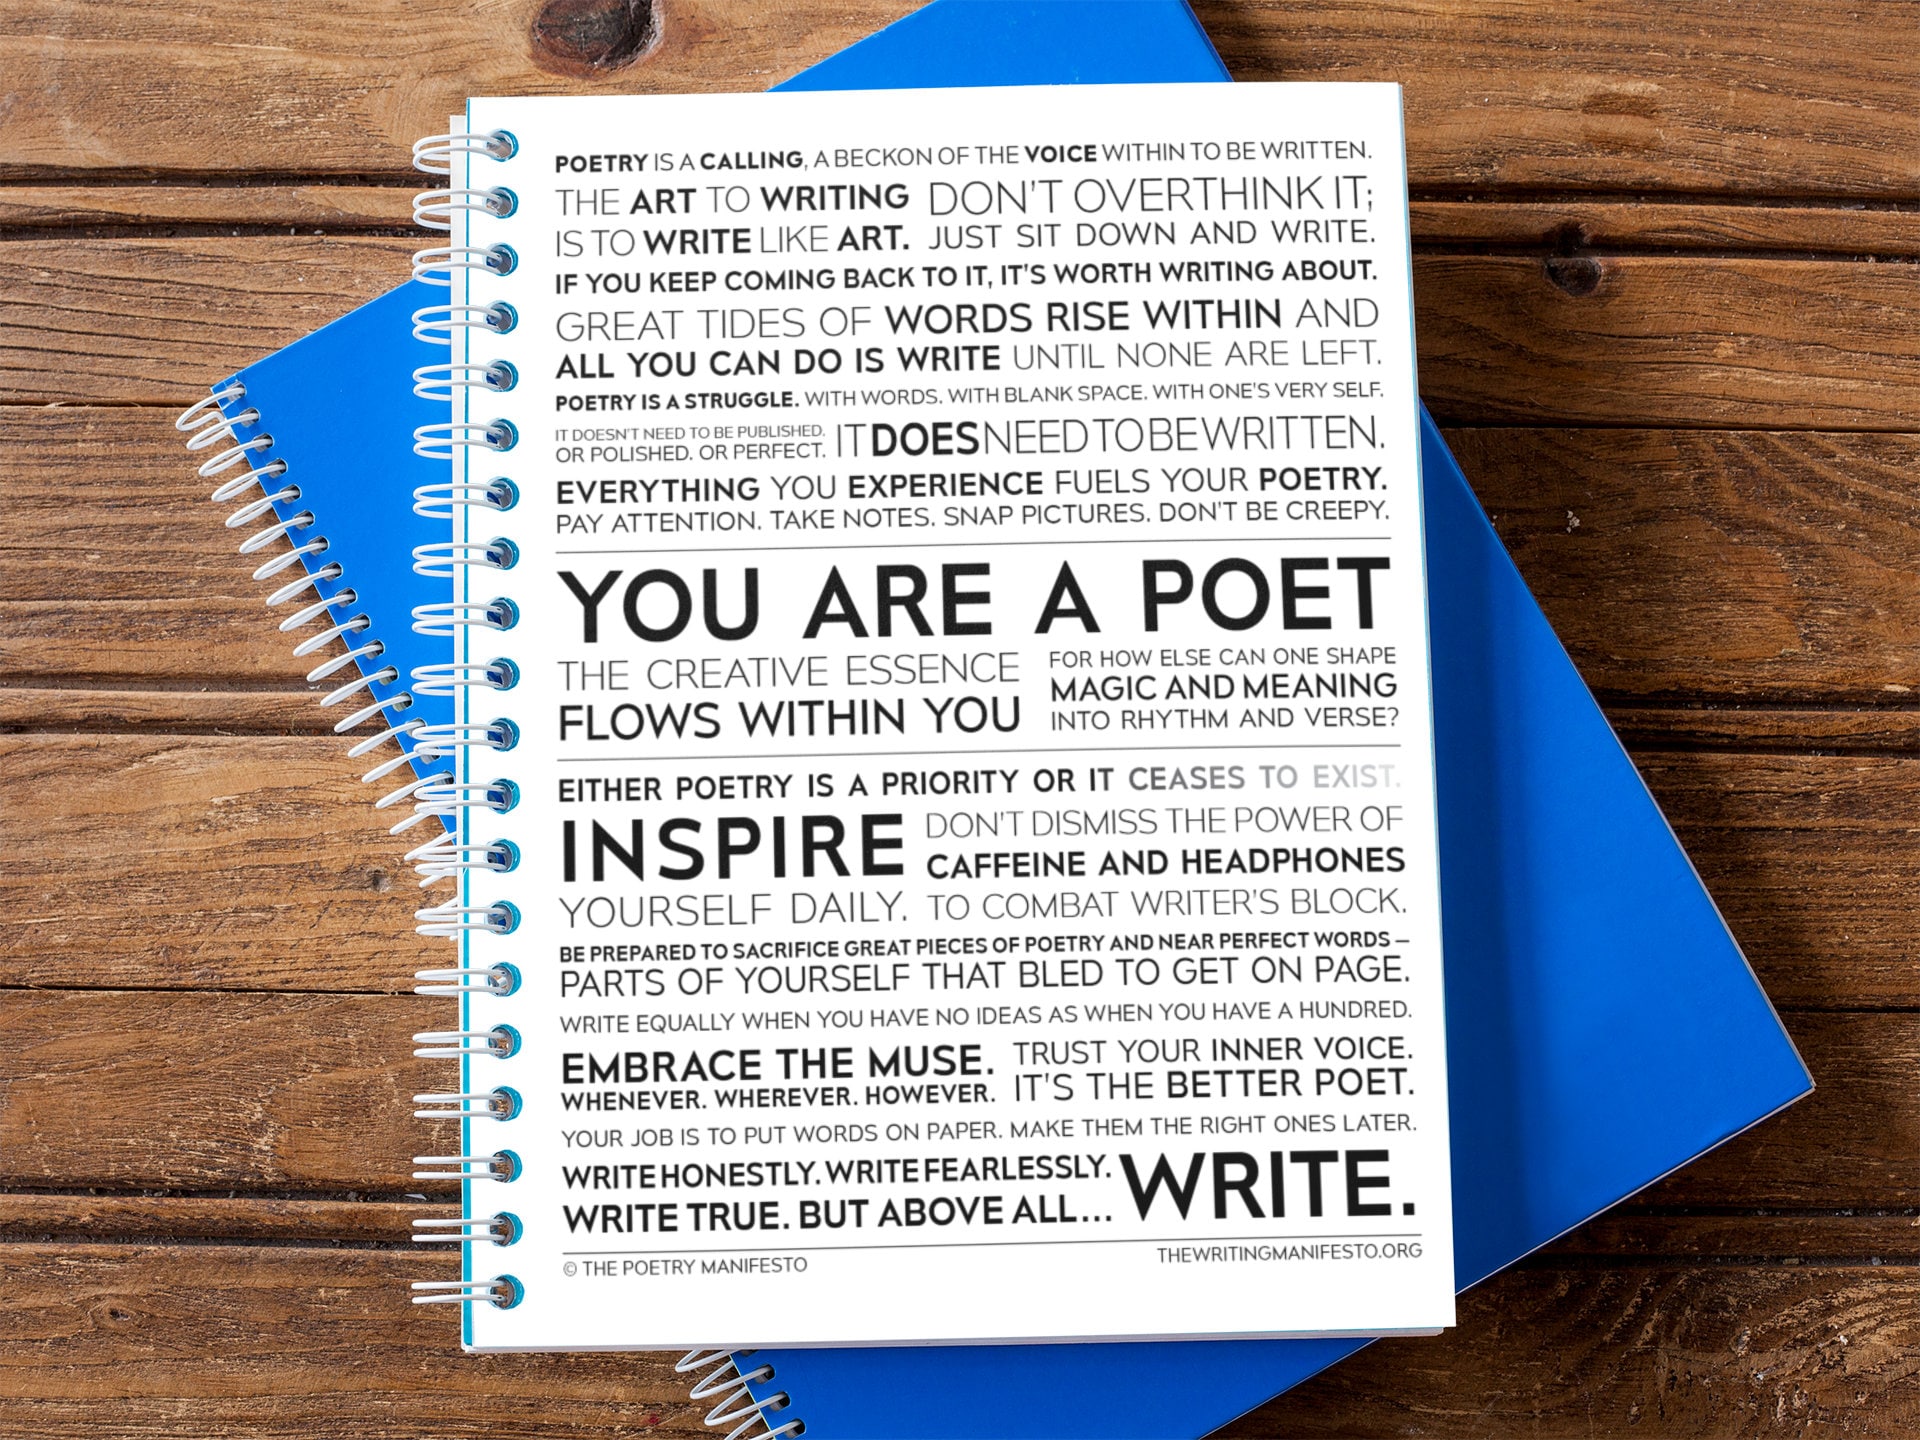 POETRY IS A CALLING, A BECKON OF THE VOICE WITHIN TO BE WRITTEN.
THE ART TO WRITING
IS TO WRITE LIKE ART.
DON'T OVERTHINK IT;
JUST SIT DOWN AND WRITE.
IF YOU KEEP COMING BACK TO IT, IT'S WORTH WRITING ABOUT.
GREAT TIDES OF WORDS RISE WITHIN AND
ALL YOU CAN DO IS WRITE UNTIL NONE ARE LEFT.
POETRY IS A STRUGGLE. WITH WORDS. WITH BLANK SPACE. WITH ONE'S VERY SELF.
IT DOESN'T NEED TO BE PUBLISHED.
OR POLISHED. OR PERFECT.
IT DOES NEED TO BE WRITTEN.
EVERYTHING YOU EXPERIENCE FUELS YOUR POETRY.
PAY ATTENTION. TAKE NOTES. SNAP PICTURES. DON'T BE CREEPY.
YOU ARE A POET
THE CREATIVE ESSENCE
FLOWS WITHIN YOU
FOR HOW ELSE CAN ONE SHAPE
MAGIC AND MEANING
INTO RHYTHM AND VERSE?
EITHER POETRY IS A PRIORITY OR IT CEASES TO EXIST.
INSPIRE
YOURSELF DAILY.
DON'T DISMISS THE POWER OF
CAFFEINE AND HEADPHONES
TO COMBAT WRITER'S BLOCK.
BE PREPARED TO SACRIFICE GREAT PIECES OF POETRY AND NEAR PERFECT WORDS –
PARTS OF YOURSELF THAT BLED TO GET ON PAGE.
WRITE EQUALLY WHEN YOU HAVE NO IDEAS AS WHEN YOU HAVE A HUNDRED.
EMBRACE THE MUSE.
WHENEVER. WHEREVER. HOWEVER.
TRUST YOUR INNER VOICE.
IT'S THE BETTER POET.
YOUR JOB IS TO PUT WORDS ON PAPER. MAKE THEM THE RIGHT ONES LATER.
WRITE HONESTLY. WRITE FEARLESSLY.
WRITE TRUE. BUT ABOVE ALL...
WRITE.
© THE POETRY MANIFESTO
THEWRITINGMANIFESTO.ORG